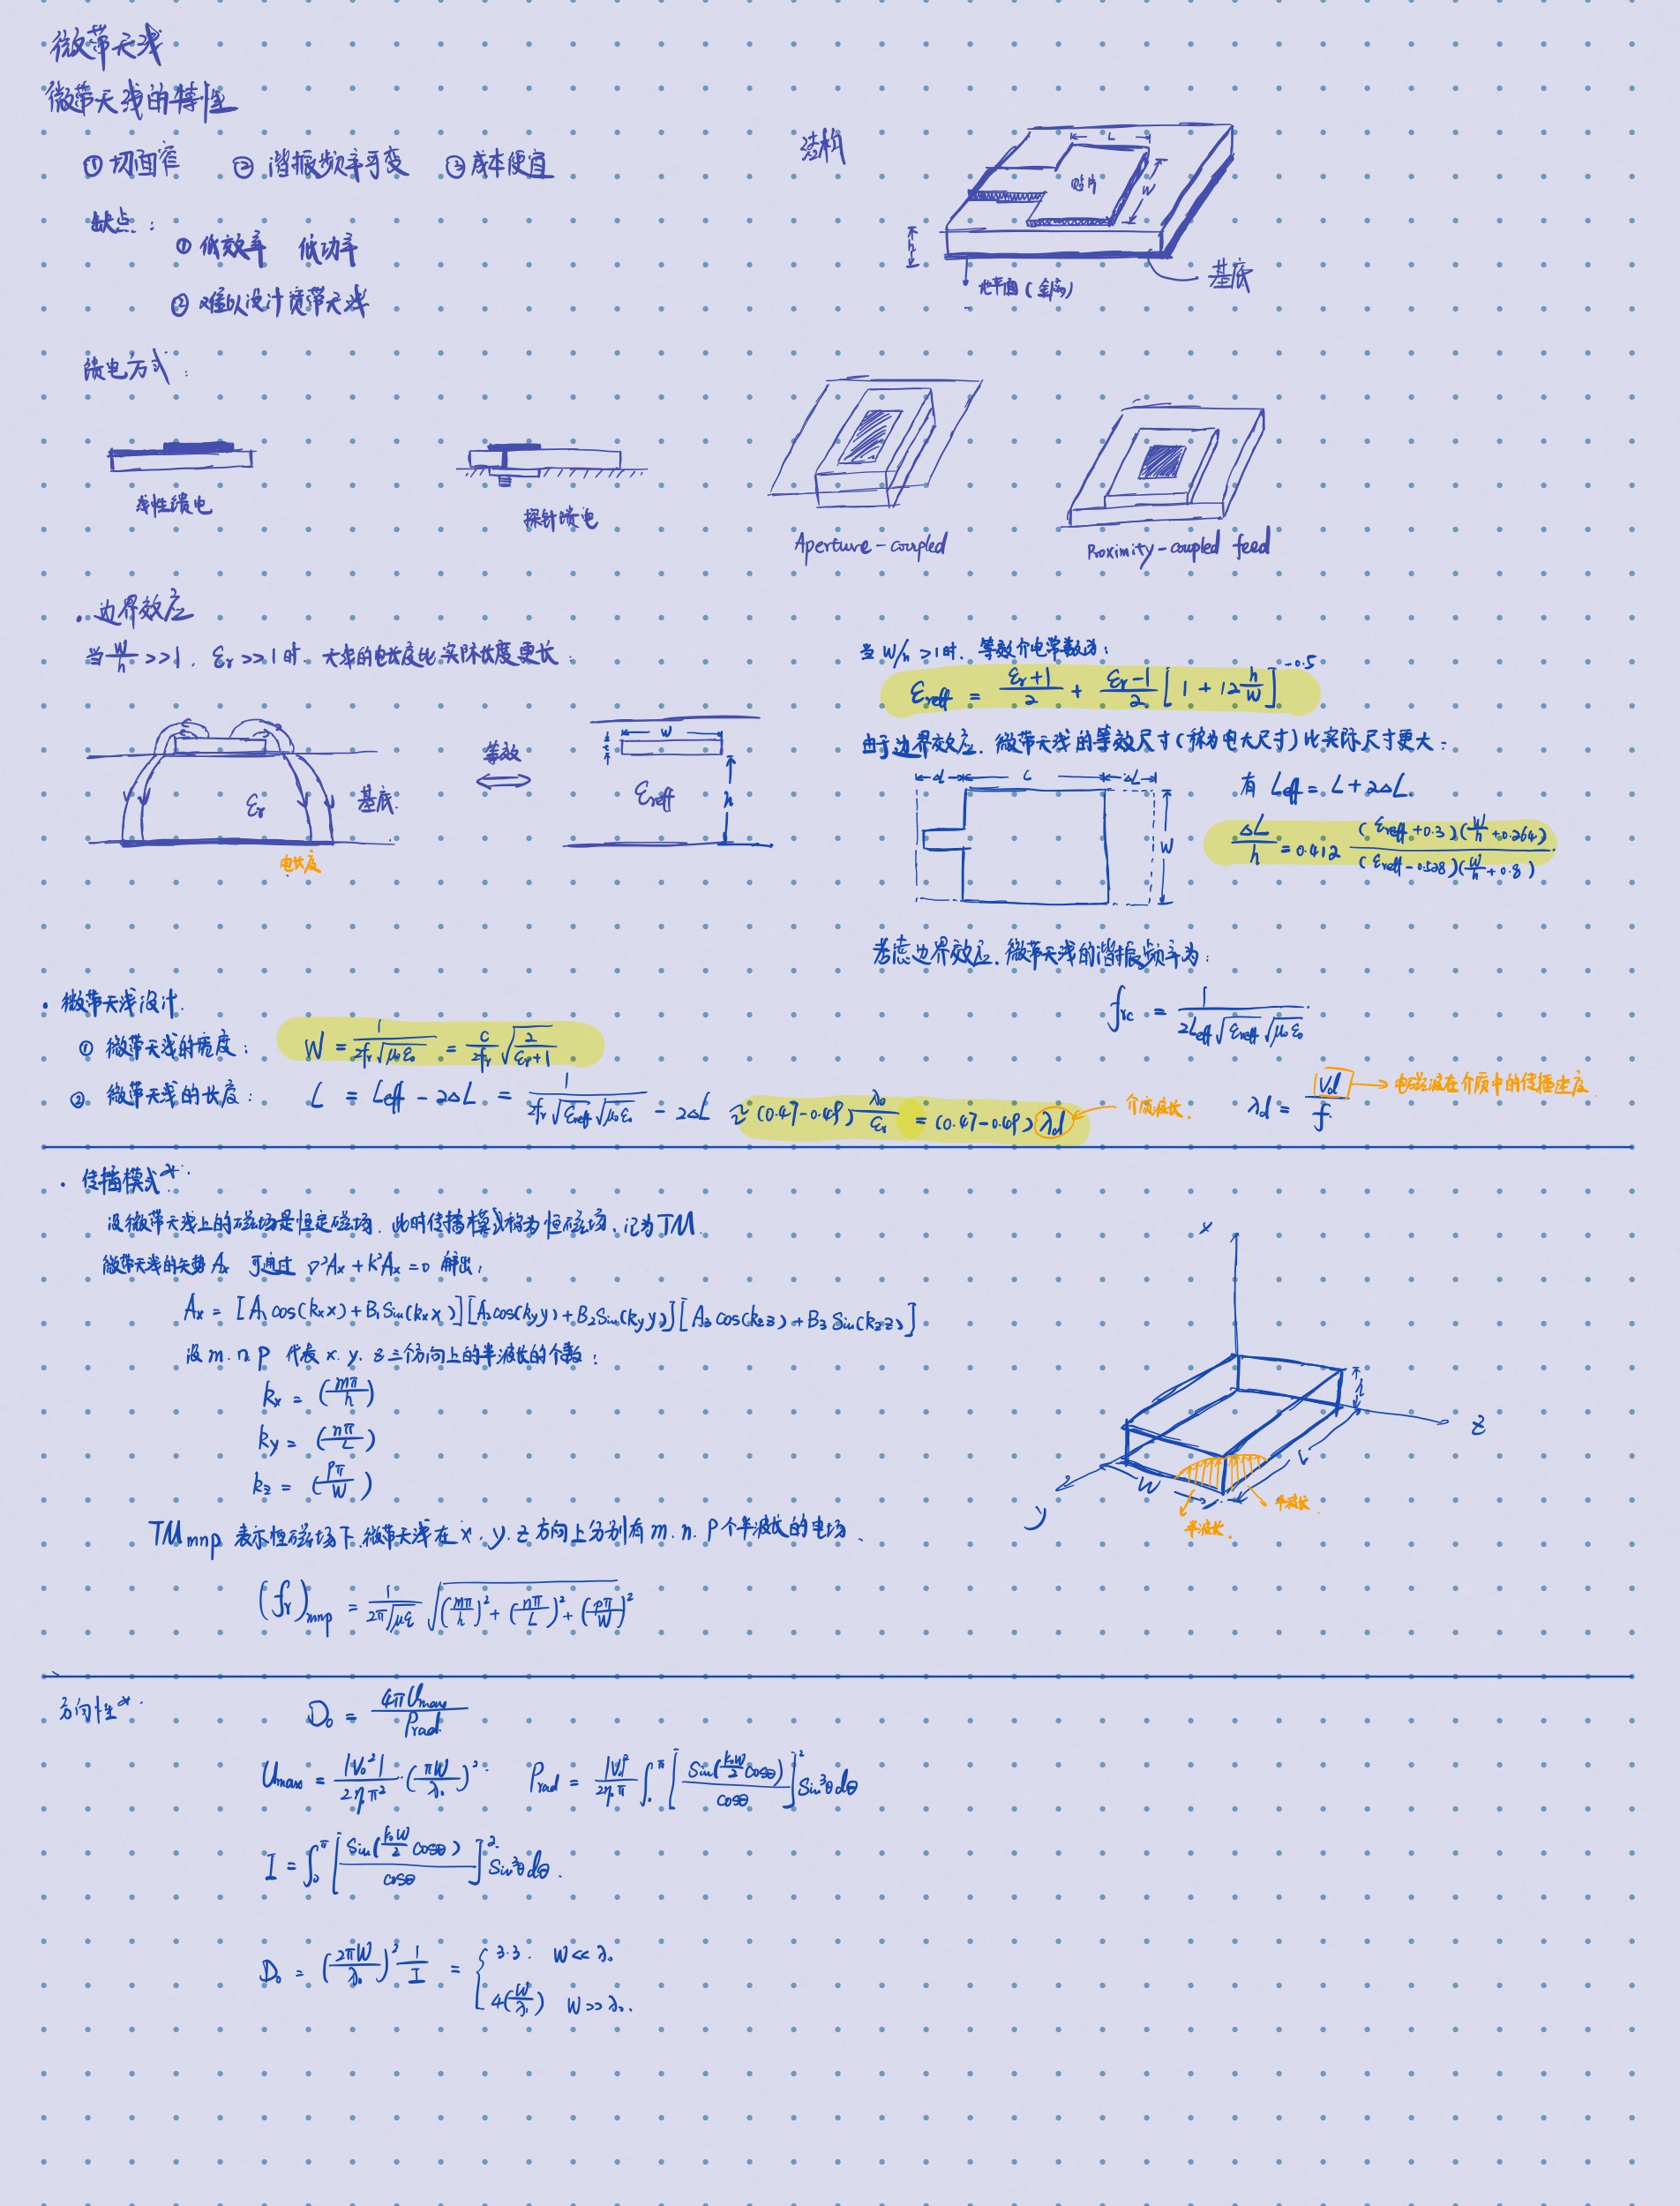 微带天线
微带天线的特性
① 切面窄 ② 谐振频率可变 ③ 成本便宜
缺点:
① 低效率 低功率
② 难以设计宽带天线
结构
L
贴片
W
h
地平面(金属)
基底
馈电方式:
线性馈电
探针馈电
Aperture-coupled
Proximity-coupled feed
· 边界效应
当 W/h >>1, εr >>1 时, 天线的电长度比实际长度更长:
εr
基底
电长度
等效
W
t
εreff
h
当 W/h >1时, 等效介电常数为:
εreff = (εr+1)/2 + (εr-1)/2 [1 + 12 h/W]^-0.5
由于边界效应, 微带天线的等效尺寸(称为电大尺寸)比实际尺寸更大:
ΔL L ΔL
W
有 Leff = L + 2ΔL
ΔL/h = 0.412 (εreff +0.3)(W/h +0.264) / (εreff -0.528)(W/h +0.8)
考虑边界效应, 微带天线的谐振频率为:
frc = 1 / (2Leff √εreff √μ0ε0)
· 微带天线设计
① 微带天线的宽度: W = 1/(2fr√μ0ε0) = C/(2fr) √(2/(εr+1))
② 微带天线的长度: L = Leff - 2ΔL = 1/(2fr√εreff √μ0ε0) - 2ΔL ≈ (0.47-0.49) λ0/εr = (0.47-0.49) λd
介质波长
λd = Vd/f
电磁波在介质中的传播速度
· 传播模式*
设微带天线上的磁场是恒定磁场, 此时传播模式称为恒磁场, 记为TM
微带天线的矢势 Ax 可通过 ∇²Ax + K²Ax = 0 解出:
Ax = [A1 cos(kx x) + B1 Sin(kx x)][A2 cos(ky y) + B2 Sin(ky y)][A3 cos(kz z) + B3 Sin(kz z)]
设 m. n. p 代表 x. y. z 三个方向上的半波长的个数:
kx = (mπ/h)
ky = (nπ/L)
kz = (pπ/W)
x
y
z
h
L
W
半波长
半波长
TMmnp 表示恒磁场下, 微带天线在 x. y. z 方向上分别有 m. n. p 个半波长的电场
(fr)mnp = 1/(2π√με) √((mπ/h)² + (nπ/L)² + (pπ/W)²
方向性*
D0 = 4πUmax / Prad
Umax = |V0²|/(2η0π²) (πW/λ0)² Prad = |V0|²/(2η0π) ∫0^π [Sin(k0W/2 cosθ)/cosθ]² Sin³θ dθ
I = ∫0^π [Sin(k0W/2 cosθ)/cosθ]² Sin³θ dθ.
D0 = (2πW/λ0)² 1/I = { 3.3. W << λ0
4(W/λ0) W >> λ0.